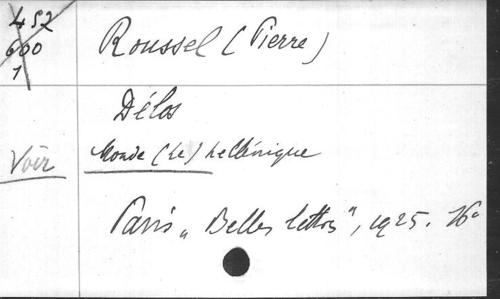 452
600
1
Roussel (Pierre)
Délos
Voir
Monde (Le) hellénique
Paris „Belles lettres", 1925. 16°